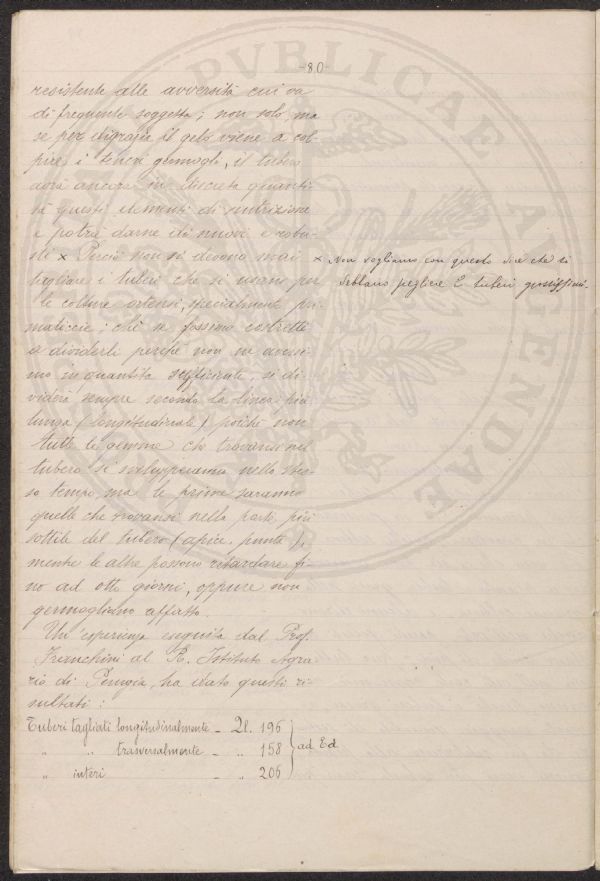 -80-
resistente alle avversità cui va
di frequente soggetta; non solo, ma
se per disgrazia il gelo viene a col-
pire i teneri germogli, il tubero
avrà ancora in discreta quanti-
tà questi elementi di nutrizione
e potrà darne di nuovi e robu-
sti × Perciò non si devono mai
tagliare i tuberi che si usano per
le colture estensi, specialmente pri-
maticcie; chè se fossimo costretti
a dividerli perchè non ne avessi-
mo in quantità sufficiente, si di-
viderà sempre secondo la linea più
lunga (longitudinale) poichè non
tutte le gemme che trovansi nel
tubero si svilupperanno nello stes-
so tempo, ma le prime saranno
quelle che trovansi nella parte più
sottile del tubero (apice, punta),
mentre le altre possono ritardare fi-
no ad otto giorni, oppure non
germogliano affatto.
Un'esperienza eseguita dal Prof.
Franchini al R. Istituto Agra-
rio di Perugia, ha dato questi ri-
sultati:
Tuberi tagliati longitudinalmente - Ql. 196
" " trasversalmente - " 158 } ad Ed
" interi - " 205
× Non vogliamo con questo dire che si
debbano scegliere i tuberi grossissimi.
PVBLICAE AGENDAE